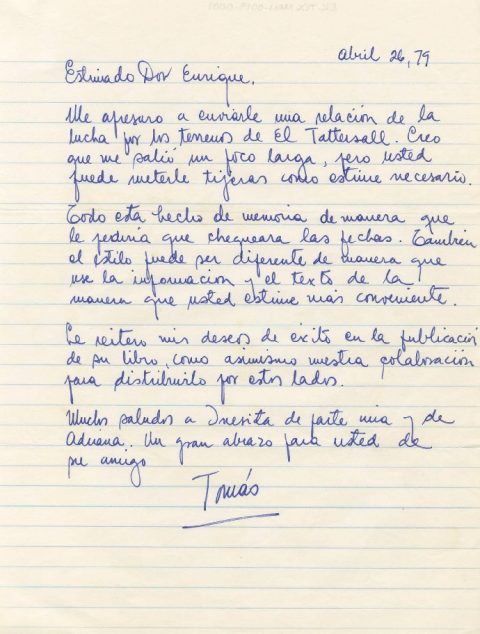 abril 26, 79
Estimado Don Enrique.
Me apresuro a enviarle una relación de la
lucha por los terrenos de El Tattersall. Creo
que me salió un poco larga, pero usted
puede meterle tijeras como estime necesario.
Todo está hecho de memoria de manera que
le pediría que chequeara las fechas. También
el estilo puede ser diferente de manera que
use la información y el texto de la
manera que usted estime más conveniente.
Le reitero mis deseos de éxito en la publicación
de su libro, como asimismo nuestra colaboración
para distribuirlo por estos lados.
Muchos saludos a Inesita de parte mía y de
Adriana. Un gran abrazo para usted de
su amigo
Tomás